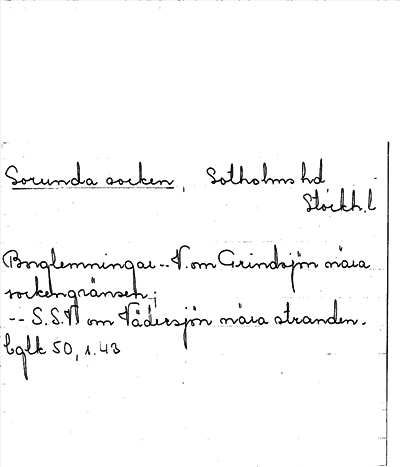 Sorunda socken, Sotholms hd
Stockh.l
Borglemningar -- V. om Grindsjön nära
sockengränsen;
-- S.S.V. om Vädersjön nära stranden.
Eglk 50, s. 43